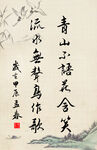 青山不語花含笑
流水無聲鳥作歌
歲在甲辰春